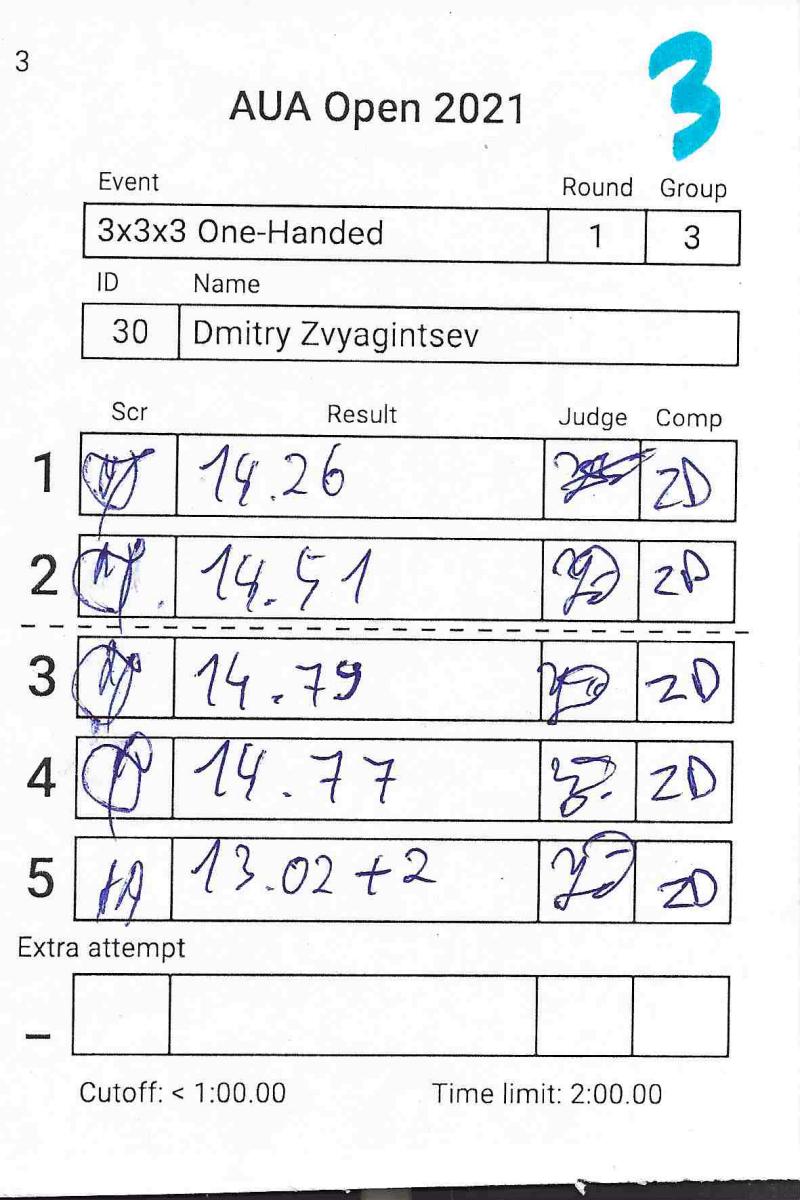 3
3
AUA Open 2021
Event Round Group
3x3x3 One-Handed 1 3
ID Name
30 Dmitry Zvyagintsev
Scr Result Judge Comp
1 14.26 ZD
2 14.51 ZD
3 14.79 ZD
4 14.77 ZD
5 13.02 +2 ZD
Extra attempt
_
Cutoff: < 1:00.00 Time limit: 2:00.00